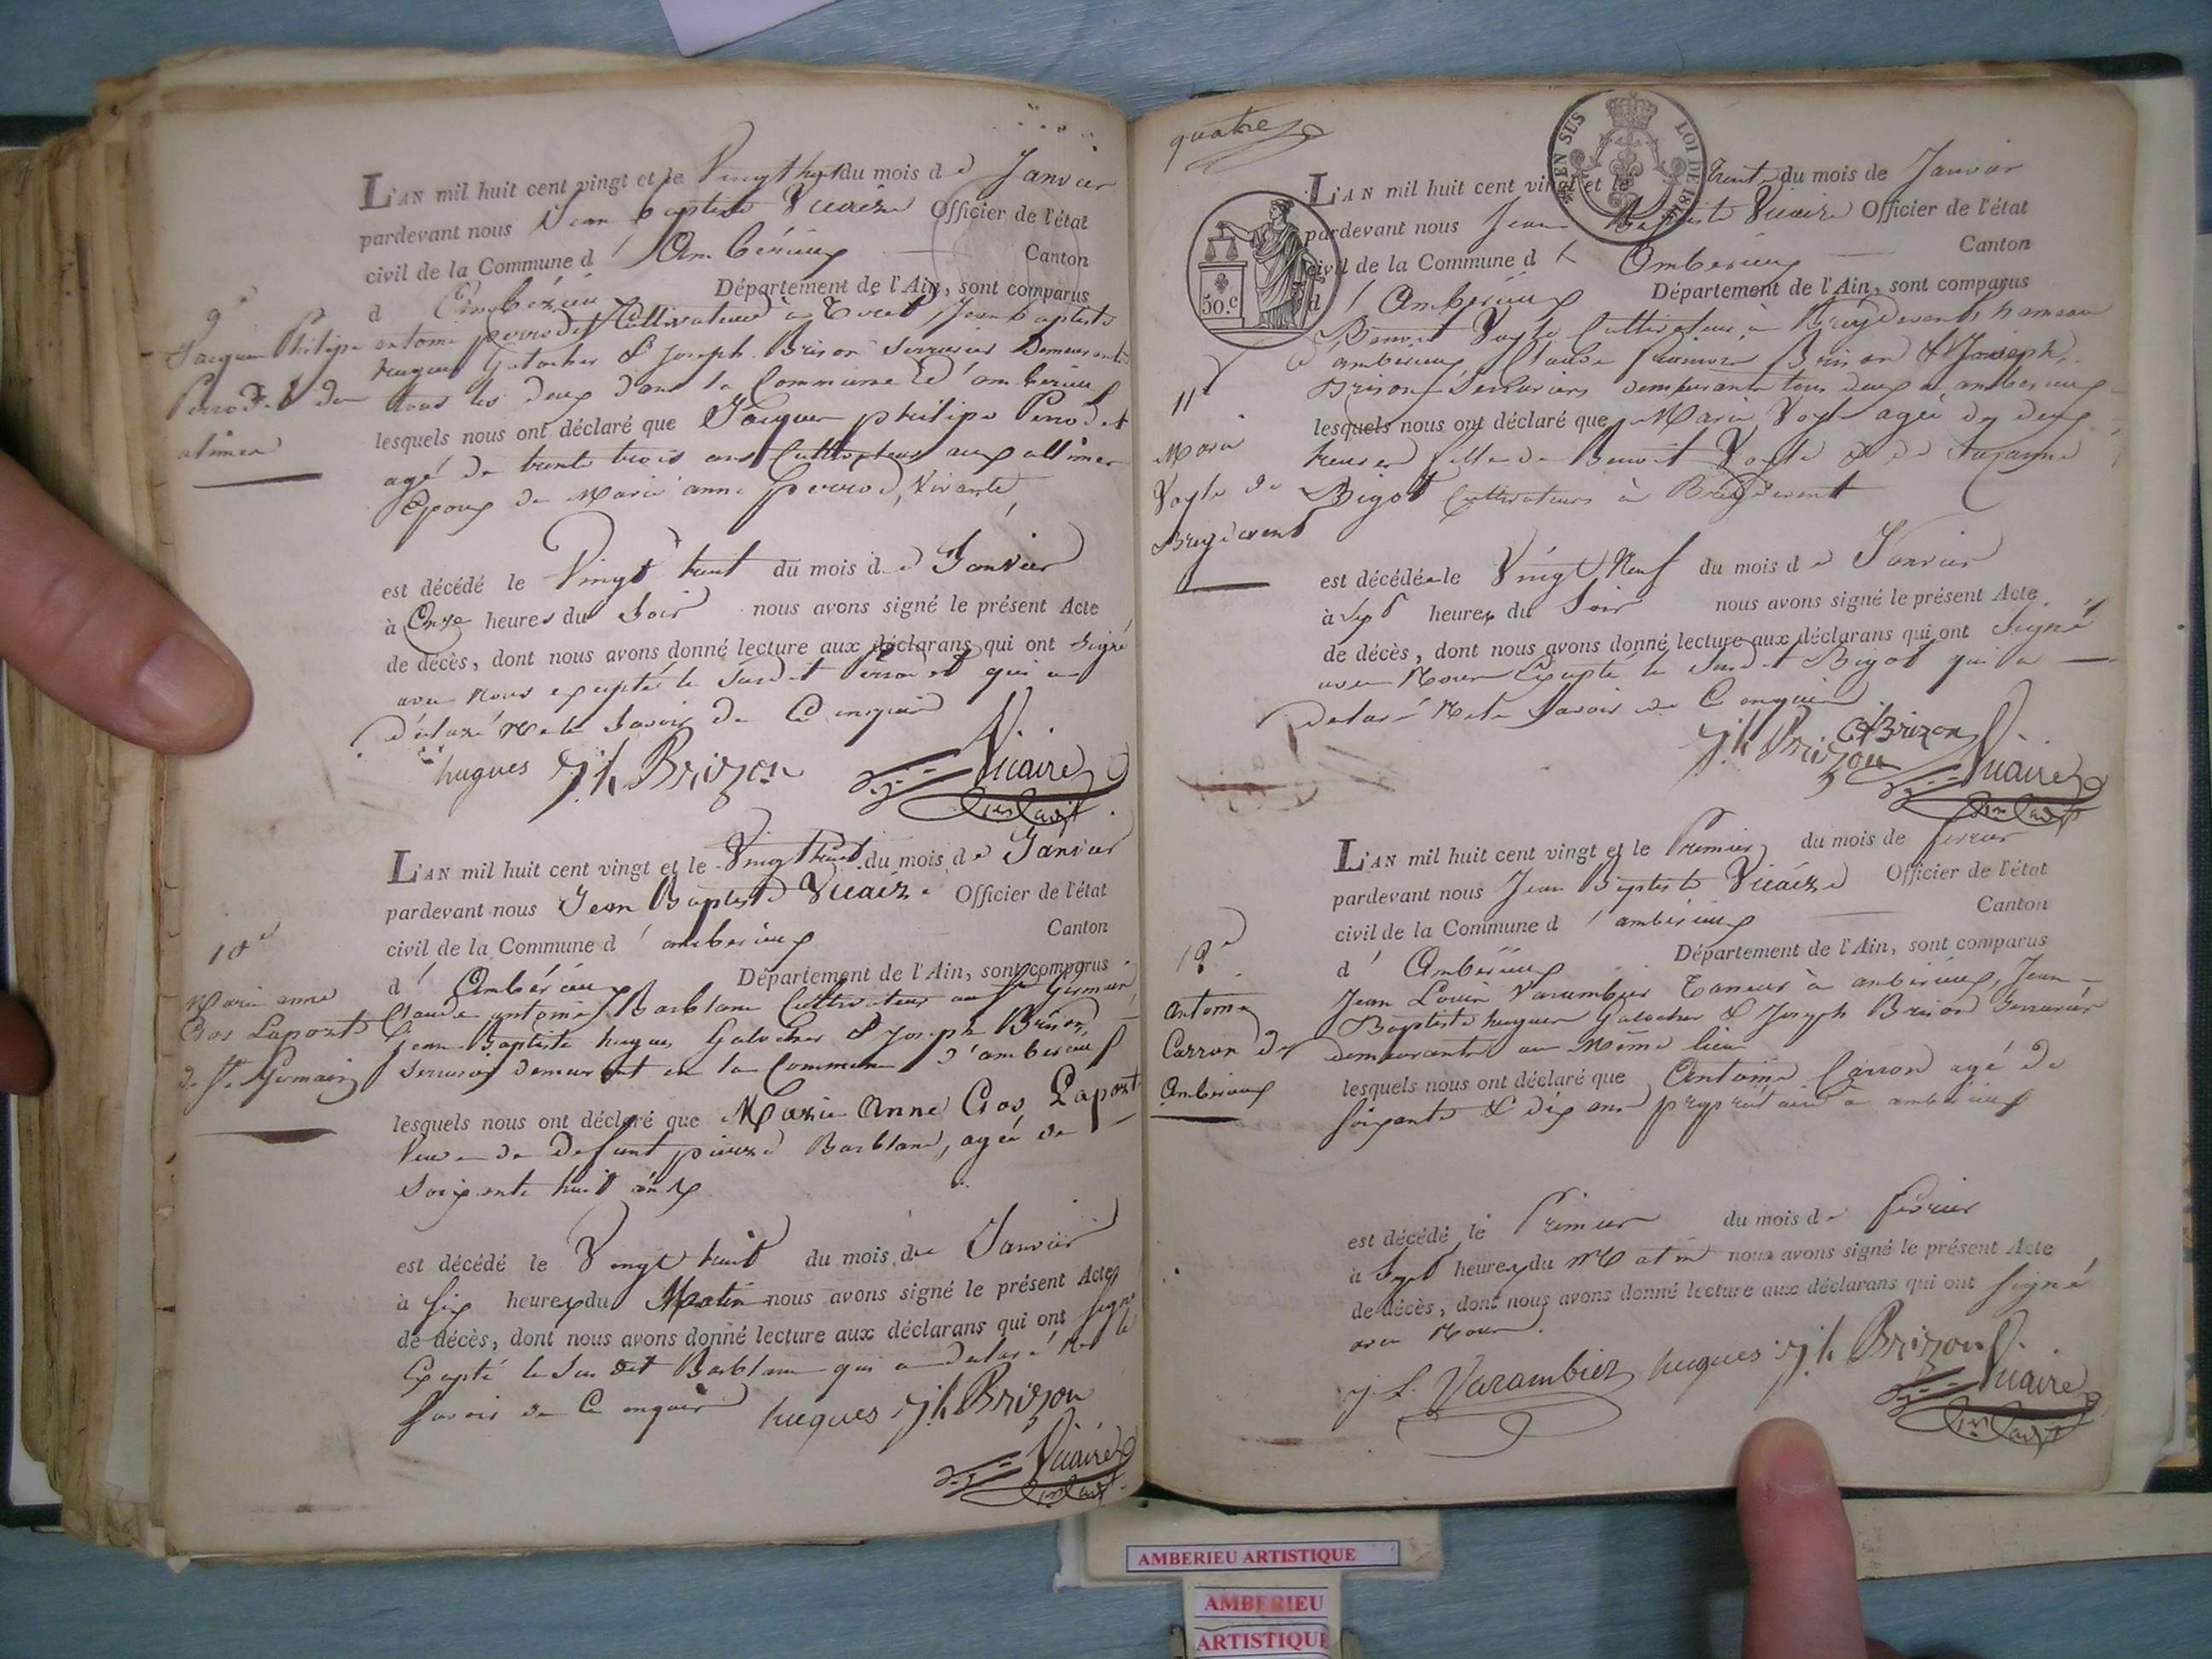 L'AN mil huit cent vingt et le Vingt huit du mois de Janvier
pardevant nous Jean baptiste Vicaire Officier de l'état
civil de la Commune d' Ambérieux Canton
d' Ambérieu Département de l'Ain, sont comparus
antoine perrodet Cultivateur à Jean baptiste
hugues Galocher & Joseph Brison Serrurier Demeurants
tous les deux dans la Commune d'ambérieux
lesquels nous ont déclaré que Jacques philipe Perrodet
agé de trente trois ans Cultivateur aux allimes
Epoux de Marie anne perrod, vivante
est décédé le Vingt huit du mois de Janvier
à Onze heures du Soir nous avons signé le présent Acte
de décès, dont nous avons donné lecture aux déclarans qui ont Signé
avec nous excepté le Susdit Perrodet qui a
déclaré Ne le Savoir De Ce enquis
hugues Jh Brizon Vicaire
9e
Jacques Philipe
Perrodet des
alimes
L'AN mil huit cent vingt et le Vingt huit du mois de Janvier
pardevant nous Jean Baptiste Vicaire Officier de l'état
civil de la Commune d' amberieux Canton
d' Ambérieux Département de l'Ain, sont comparus
Claude antoine Barblanc Cultivateur au St Germain,
Jean Baptiste hugues Galocher & Joseph Brison,
Serrurier demeurant en la Commune d'amberieux
lesquels nous ont déclaré que Marie Anne Cros Laport
Veuve de Defunt pierre Barblanc, agée de
Soixante huit ans
est décédé le Vingt huit du mois de Janvier
à Six heures du Matin nous avons signé le présent Acte
de décès, dont nous avons donné lecture aux déclarans qui ont Signé
Excepté le Susdit Barblanc qui a declaré Ne le
Savoir de Ce enquis hugues Jh Brizon
Vicaire
10e
Marie anne
Cros Laport
de St Germain
quatre
EN SUS LOI DE 1816
50.c
L'AN mil huit cent vingt et le trente du mois de Janvier
pardevant nous Jean Baptiste Vicaire Officier de l'état
civil de la Commune d' Amberieux Canton
d' Ambérieux Département de l'Ain, sont comparus
Benoit Vayle Cultivateur à Breydevent hameau
d'amberieux Claude Brison & Joseph
Brison Serruriers demeurants tous deux a amberieux
lesquels nous ont déclaré que Marie Vayle agée de deux
heures fille de Benoit Vayle & de Suzanne
Bigot Cultivateurs à Breydevent
est décédée le Vingt Neuf du mois de Janvier
à Sept heures du Soir nous avons signé le présent Acte
de décès, dont nous avons donné lecture aux déclarans qui ont Signé
avec Nous Excepté le Susdit Bigot qui a
declaré Ne le Savoir de Ce enquis
Jh Brizon Cl Brizon Vicaire
11e
Marie
Vayle de
Breydevent
L'AN mil huit cent vingt et le Premier du mois de fevrier
pardevant nous Jean Baptiste Vicaire Officier de l'état
civil de la Commune d' amberieux Canton
d' Ambérieux Département de l'Ain, sont comparus
Jean Louis Varambier Taneur à amberieux, Jean
Baptiste hugues Galocher & Joseph Brison Serrurier
demeurants au Même lieu
lesquels nous ont déclaré que Antoine Carron agé de
Soixante & dix ans propriétaire a amberieux
est décédé le Premier du mois de fevrier
à Sept heures du Matin nous avons signé le présent Acte
de décès, dont nous avons donné lecture aux déclarans qui ont Signé
avec Nous.
J. L. Varambier hugues Jh Brizon Vicaire
12e
Antoine
Carron de
Amberieux
AMBERIEU ARTISTIQUE
AMBERIEU
ARTISTIQUE